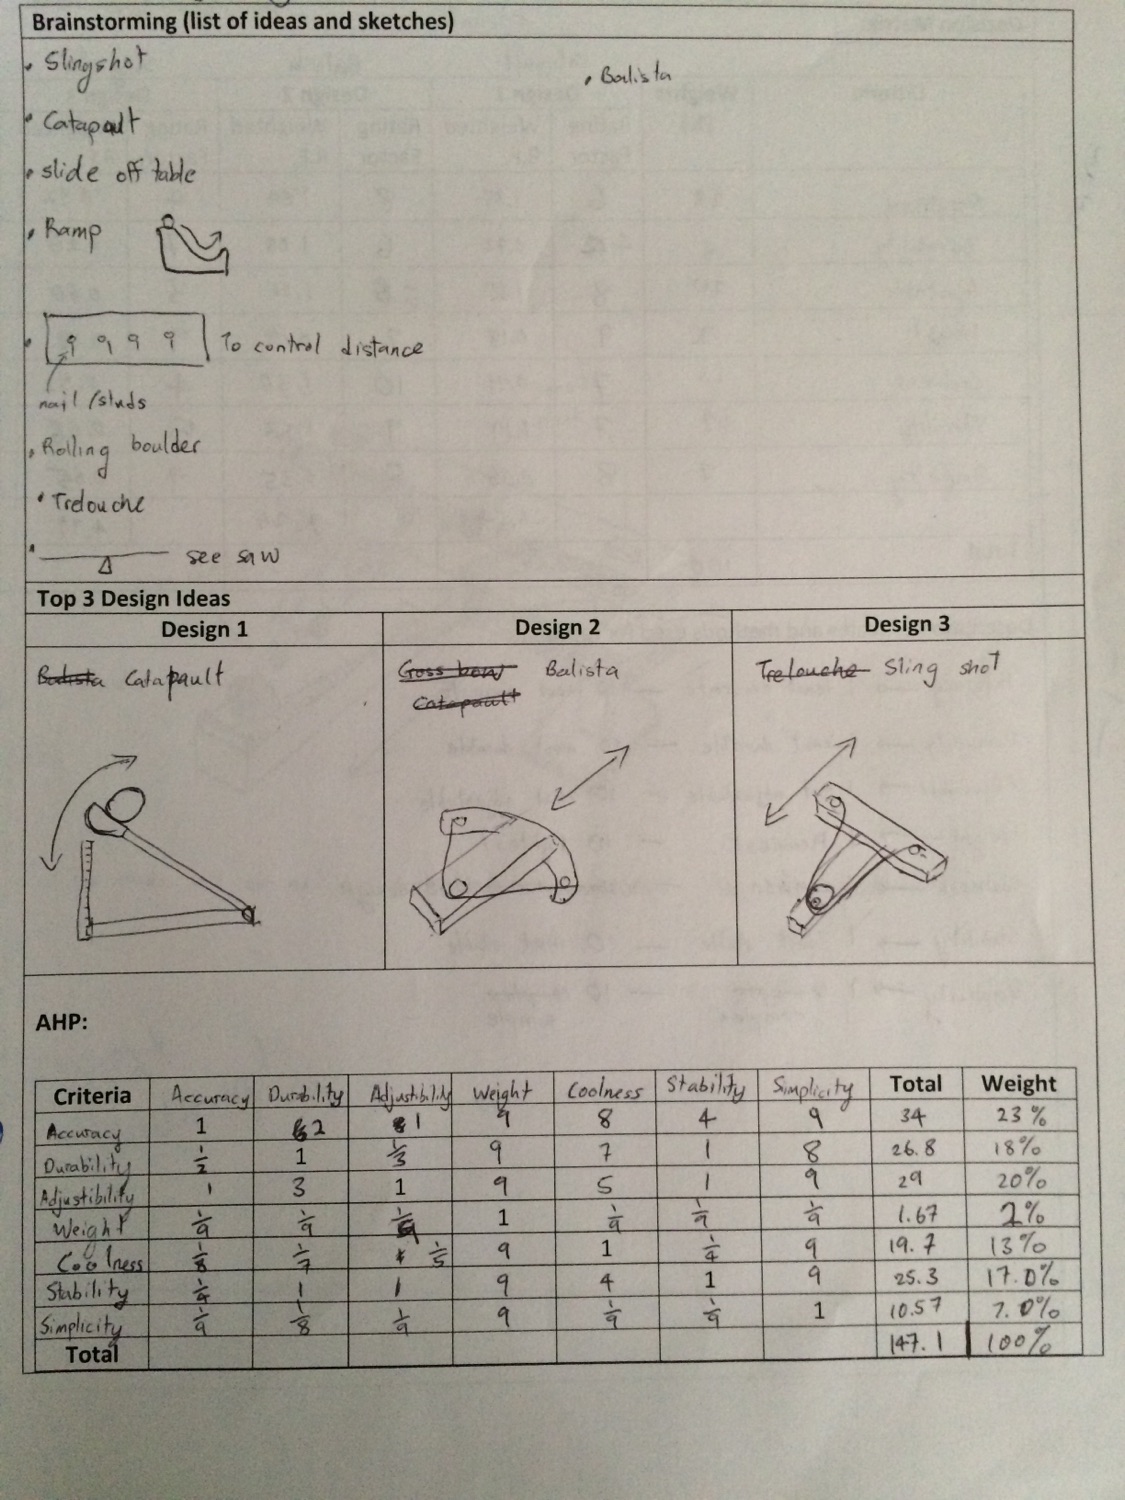 Brainstorming (list of ideas and sketches)
• Slingshot
• Balista
• Catapault
• slide off table
• Ramp
• To control distance
nail/studs
• Rolling boulder
• Trelouche
• see saw
Top 3 Design Ideas
Design 1 Design 2 Design 3
Balista Catapault
Cross bow Balista
Catapault
Trelouche Sling shot
AHP:
Criteria Accuracy Durability Adjustibility Weight Coolness Stability Simplicity Total Weight
Accuracy 1 2 1 9 8 4 9 34 23%
Durability 1/2 1 1/3 9 7 1 8 26.8 18%
Adjustibility 1 3 1 9 5 1 9 29 20%
Weight 1/9 1/9 1/9 1 1/9 1/9 1/9 1.67 2%
Coolness 1/8 1/7 1/5 9 1 1/4 9 19.7 13%
Stability 1/4 1 1 9 4 1 9 25.3 17.0%
Simplicity 1/9 1/8 1/9 9 1/9 1/9 1 10.57 7.0%
Total 147.1 100%